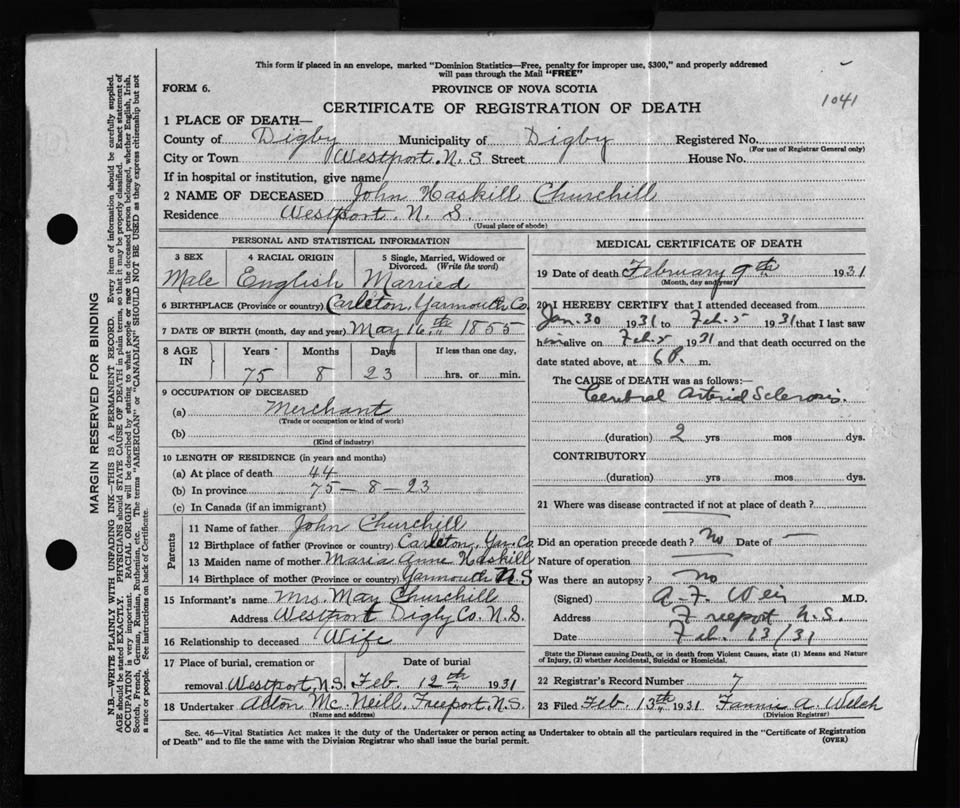 This form if placed in an envelope, marked "Dominion Statistics—Free, penalty for improper use, $300," and properly addressed
will pass through the Mail "FREE"
FORM 6.
PROVINCE OF NOVA SCOTIA
1041
CERTIFICATE OF REGISTRATION OF DEATH
1 PLACE OF DEATH—
County of Digby Municipality of Digby Registered No.
(For use of Registrar General only)
City or Town Westport. N. S. Street House No.
If in hospital or institution, give name
2 NAME OF DECEASED John Haskill Churchill
Residence Westport. N. S.
(Usual place of abode)
PERSONAL AND STATISTICAL INFORMATION
3 SEX 4 RACIAL ORIGIN 5 Single, Married, Widowed or Divorced. (Write the word)
Male English Married
6 BIRTHPLACE (Province or country) Carleton, Yarmouth Co.
7 DATE OF BIRTH (month, day and year) May 16th 1855
8 AGE IN Years Months Days If less than one day,
75 8 23 hrs. or min.
9 OCCUPATION OF DECEASED
(a) Merchant
(Trade or occupation or kind of work)
(b)
(Kind of industry)
10 LENGTH OF RESIDENCE (in years and months)
(a) At place of death 44
(b) In province 75 - 8 - 23
(c) In Canada (if an immigrant)
Parents
11 Name of father John Churchill
12 Birthplace of father (Province or country) Carleton, Yar. Co
13 Maiden name of mother Maria Anne Haskill
14 Birthplace of mother (Province or country) Yarmouth N.S
15 Informant's name Mrs. May Churchill
Address Westport Digby Co. N.S.
16 Relationship to deceased Wife
17 Place of burial, cremation or Date of burial
removal Westport, N.S. Feb. 12th 1931
18 Undertaker Acton McNeill, Freeport, N.S.
(Name and address)
MEDICAL CERTIFICATE OF DEATH
19 Date of death February 9th 1931
(Month, day and year)
20 I HEREBY CERTIFY that I attended deceased from
Jan. 30 1931 to Feb. 5 1931 that I last saw
him alive on Feb. 5 1931 and that death occurred on the
date stated above, at 6 P. m.
The CAUSE of DEATH was as follows:—
Cerebral Arterio Sclerosis.
(duration) 2 yrs mos dys.
CONTRIBUTORY
(duration) yrs mos dys.
21 Where was disease contracted if not at place of death?
Did an operation precede death? No Date of —
Nature of operation —
Was there an autopsy? no
(Signed) A. F. Weir M.D.
Address Freeport N.S.
Date Feb. 13/31
State the Disease Causing Death, or in death from Violent Causes, state (1) Means and Nature
of Injury, (2) whether Accidental, Suicidal or Homicidal.
22 Registrar's Record Number 7
23 Filed Feb. 13th 1931 Fannie A. Welch
(Division Registrar)
Sec. 46—Vital Statistics Act makes it the duty of the Undertaker or person acting as Undertaker to obtain all the particulars required in the "Certificate of Registration
of Death" and to file the same with the Division Registrar who shall issue the burial permit.
(OVER)
MARGIN RESERVED FOR BINDING
N.B.—WRITE PLAINLY WITH UNFADING INK—THIS IS A PERMANENT RECORD. Every item of information should be carefully supplied.
AGE should be stated EXACTLY. PHYSICIANS should STATE CAUSE OF DEATH in plain terms, so that it may be properly classified. Exact statement of
OCCUPATION is very important. RACIAL ORIGIN will be described by stating to what people or race the deceased person belonged, whether English, Irish,
Scotch, French, German, Russian, Ruthenian, etc. The terms "AMERICAN" or "CANADIAN" SHOULD NOT BE USED as they express citizenship but not
a race or people. See instructions on back of Certificate.